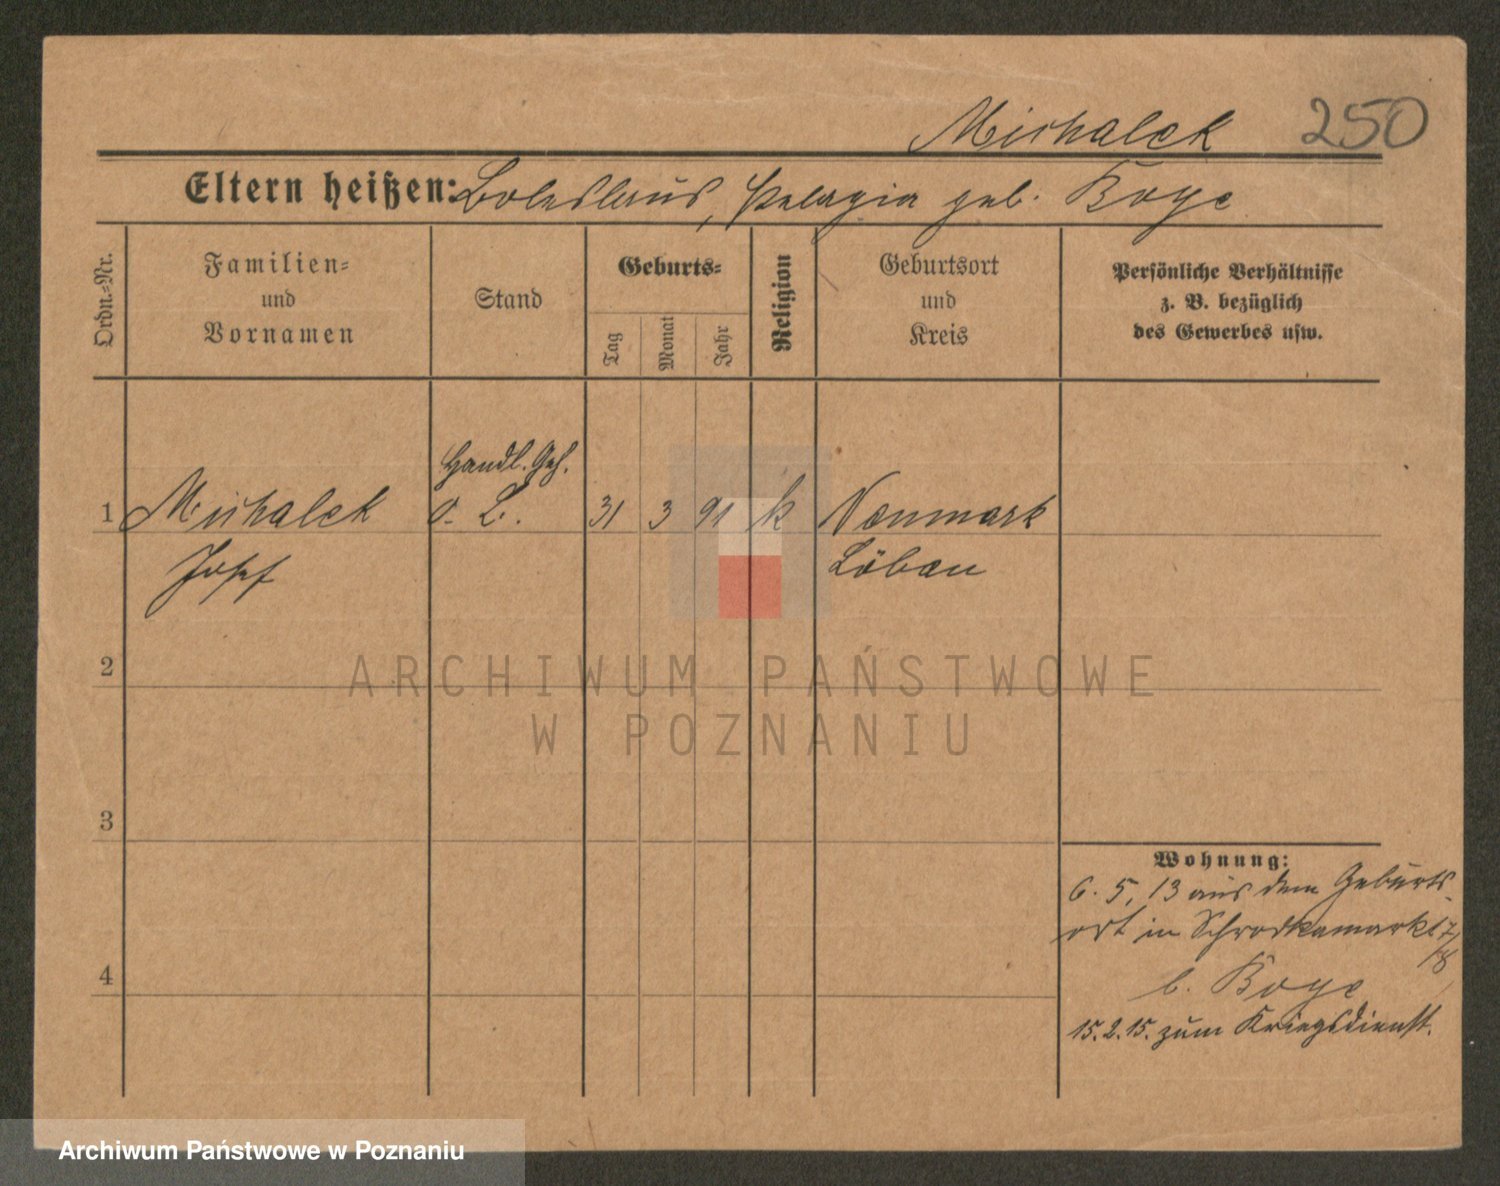 Michalek 250
Eltern heißen: Boleslaus, Pelagia geb. Boye
Ordn.-Nr.
Familien-
und
Vornamen
Stand
Geburts-
Tag
Monat
Jahr
Religion
Geburtsort
und
Kreis
Persönliche Verhältnisse
z. B. bezüglich
des Gewerbes usw.
Handl. Geh.
1 Michalek o. L. 31 3 91 k Neumark
Josef Löbau
2
ARCHIWUM PAŃSTWOWE
W POZNANIU
3
Wohnung:
6. 5. 13 aus dem Geburts-
ort in Schrodkamarkt 7/8
b. Boye
4
15.2.15. zum Kriegsdienst.
Archiwum Państwowe w Poznaniu